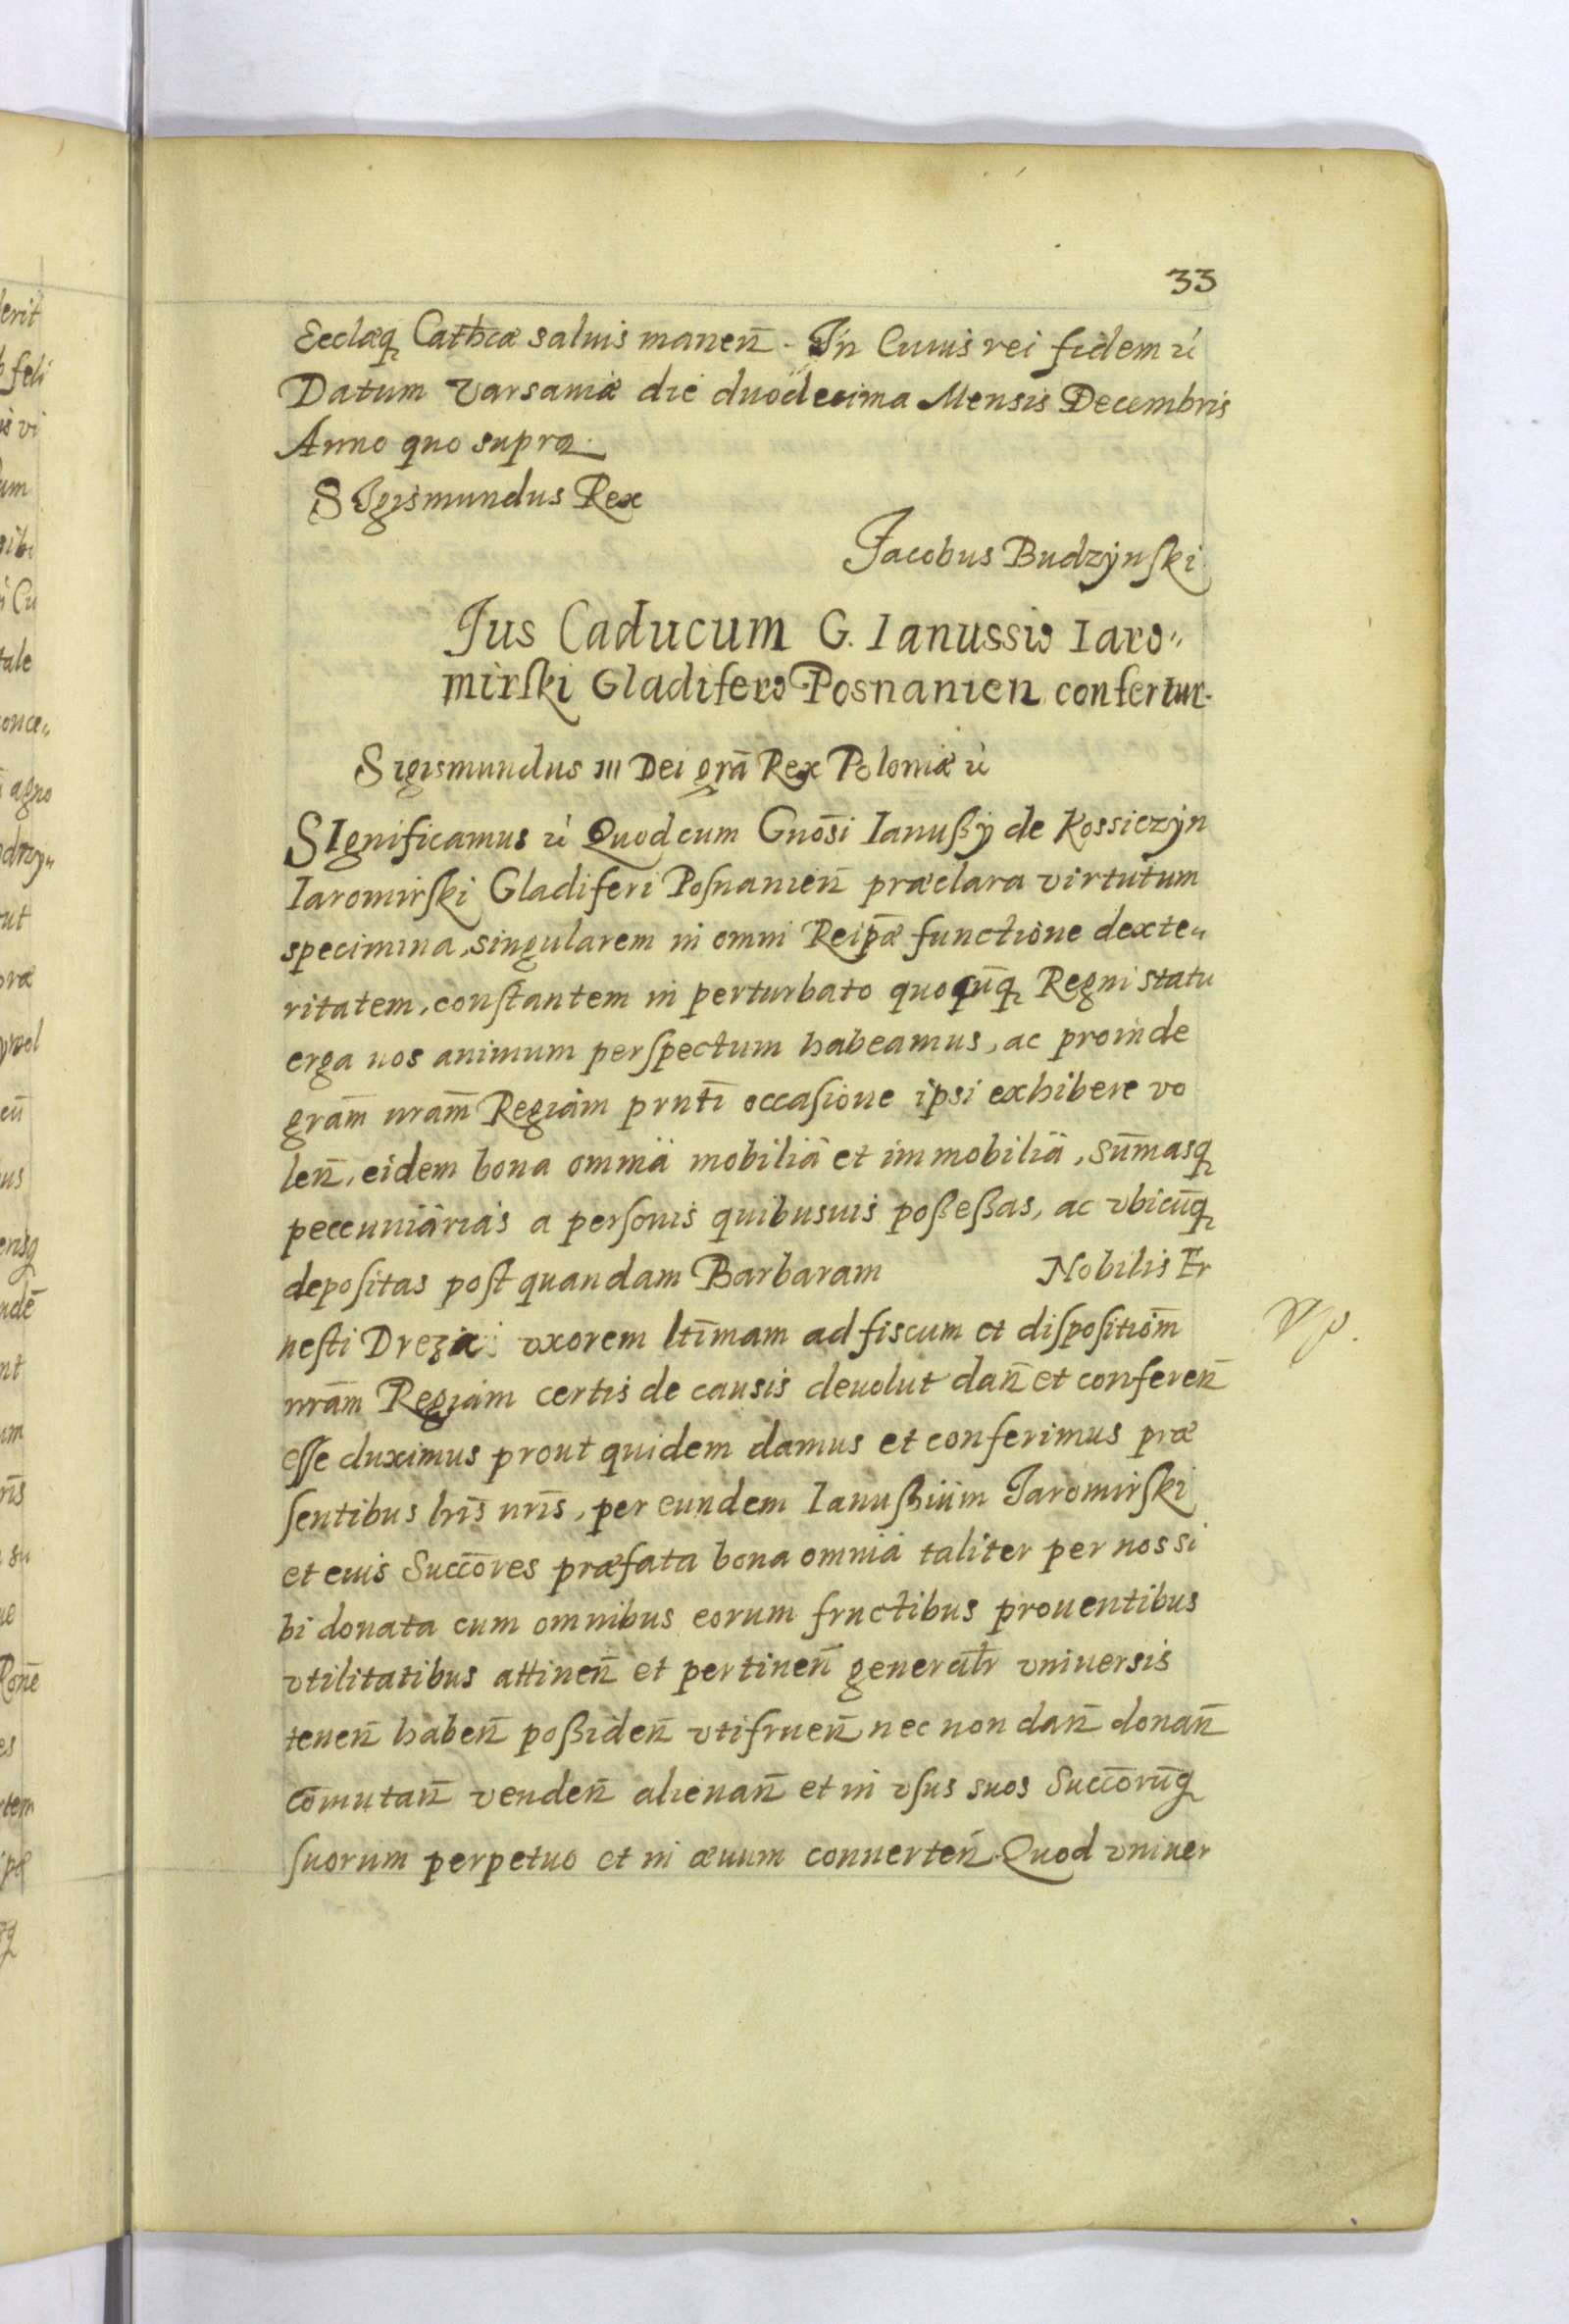 33
Ecclæq Cathcæ saluis manen̄. In Cuius rei fidem ů
Datum Varsauiæ die duodecima Mensis Decembris
Anno quo supra.
SIgismundus Rex
Jacobus Budzÿnſki
Jus Caducum G. Ianussio Iaro„
mirſki Gladifero Posnanien confertur.
Sigismundus III Dei grā Rex Poloniæ ů
SIgnificamus ů Quod cum Gnōsi Ianußÿ de Kossiczÿn
Iaromirſki Gladiferi Poſnanien̄ præclara virtutum
specimina, singularem in omni Reipǣ functione dexte„
ritatem, conſtantem in perturbato quocūq Regni statu
erga nos animum perſpectum habeamus, ac proinde
grām nrām Regiam prntī occaſione ipsi exhibere vo
len̄, eidem bona omnia mobilia et immobilia, sūmasq
peccuniarias a perſonis quibusuis poßeßas, ac vbicūq
depoſitas poſt quandam Barbaram Nobilis Er
neſti Drezia vxorem ltīmam ad fiscum et diſpoſitiōm
nrām Regiam certis de causis deuolut dan̄ et conferen̄
eſſe duximus prout quidem damus et conferimus præ
ſentibus lrīs nrīs, per eundem Ianußium Jaromirſki
et euis Succōres præfata bona omnia taliter per nos si
bi donata cum omnibus eorum fructibus prouentibus
vtilitatibus attinen̄ et pertinen̄ generalr̄ vniuersis
tenen̄ haben̄ poßiden̄ vtifruen̄ nec non dan̄ donan̄
cōmutan̄ venden̄ alienan̄ et in vſus suos Succōrūq
ſuorum perpetuo et in æuum conuerten̄. Quod vniuer